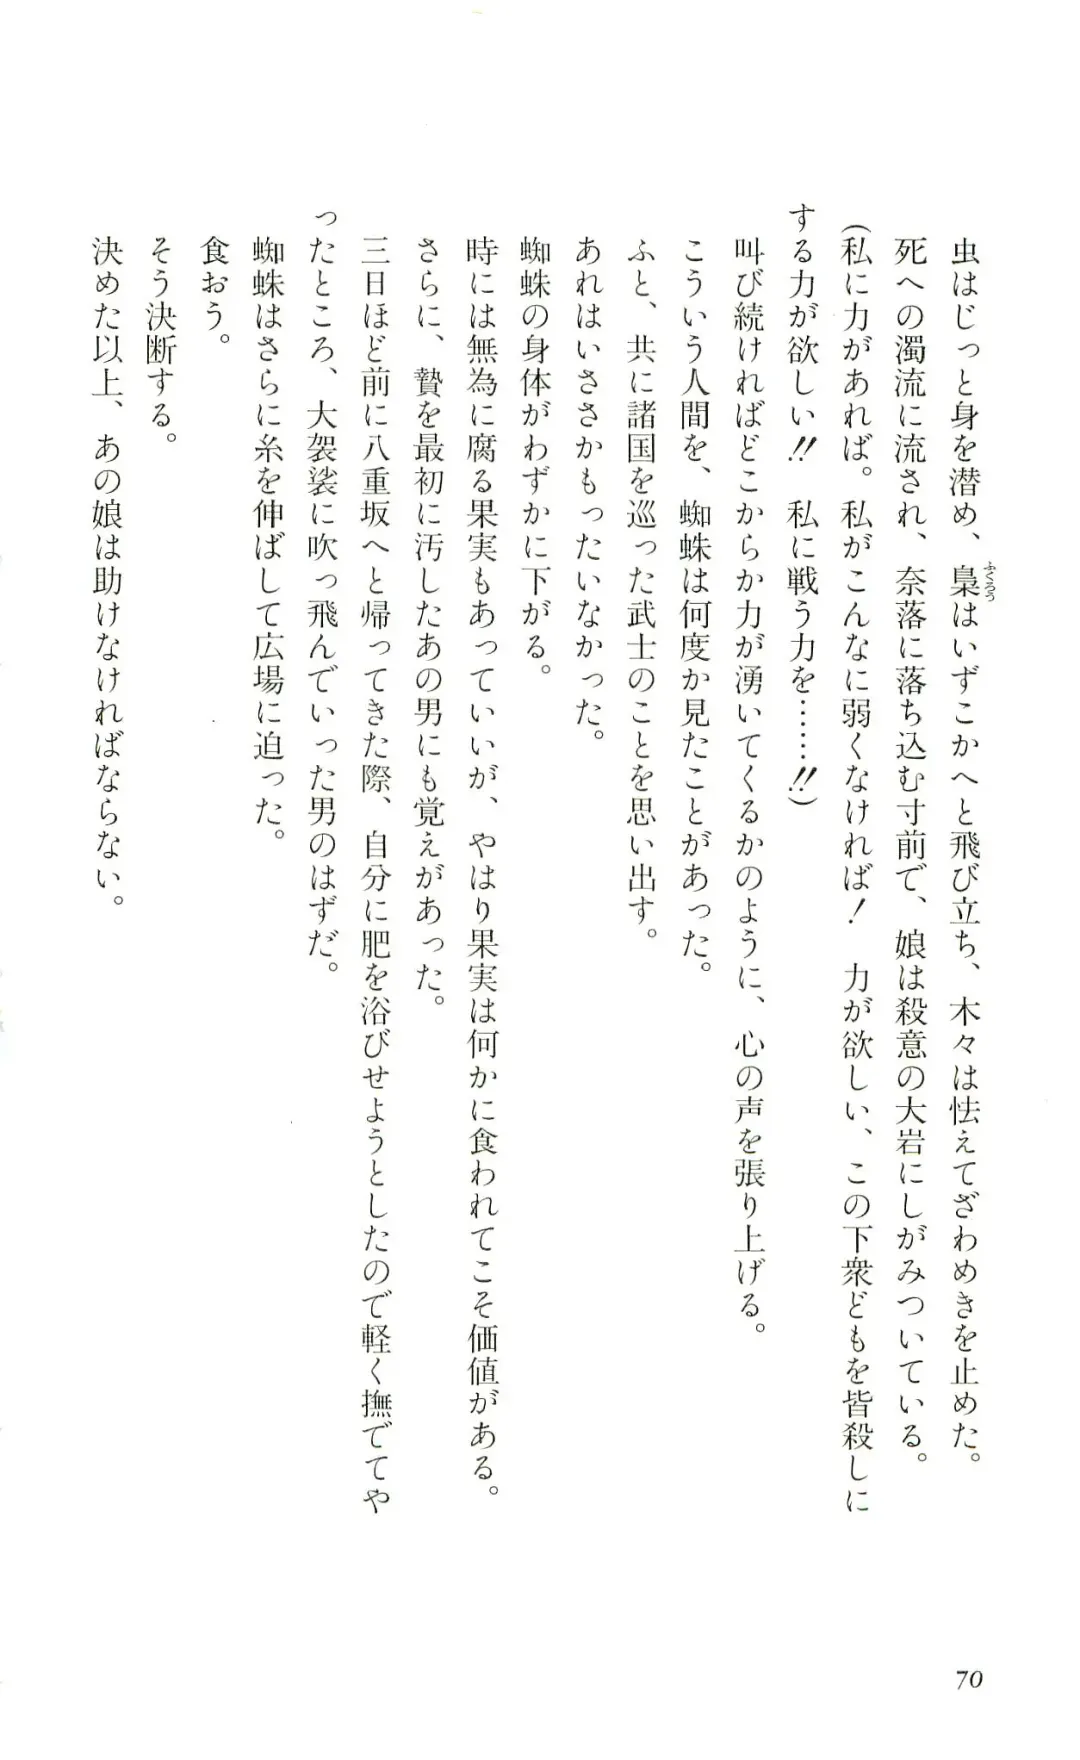 虫はじっと身を潜め、梟はいずこかへと飛び立ち、木々は怯えてざわめきを止めた。
ふくろう
死への濁流に流され、奈落に落ち込む寸前で、娘は殺意の大岩にしがみついている。
(私に力があれば。私がこんなに弱くなければ！　力が欲しい、この下衆どもを皆殺しに
する力が欲しい!!　私に戦う力を……!!)
叫び続ければどこからか力が湧いてくるかのように、心の声を張り上げる。
こういう人間を、蜘蛛は何度か見たことがあった。
ふと、共に諸国を巡った武士のことを思い出す。
あれはいささかもったいなかった。
蜘蛛の身体がわずかに下がる。
時には無為に腐る果実もあっていいが、やはり果実は何かに食われてこそ価値がある。
さらに、贄を最初に汚したあの男にも覚えがあった。
三日ほど前に八重坂へと帰ってきた際、自分に肥を浴びせようとしたので軽く撫でてや
ったところ、大袈裟に吹っ飛んでいった男のはずだ。
蜘蛛はさらに糸を伸ばして広場に迫った。
食おう。
そう決断する。
決めた以上、あの娘は助けなければならない。
70